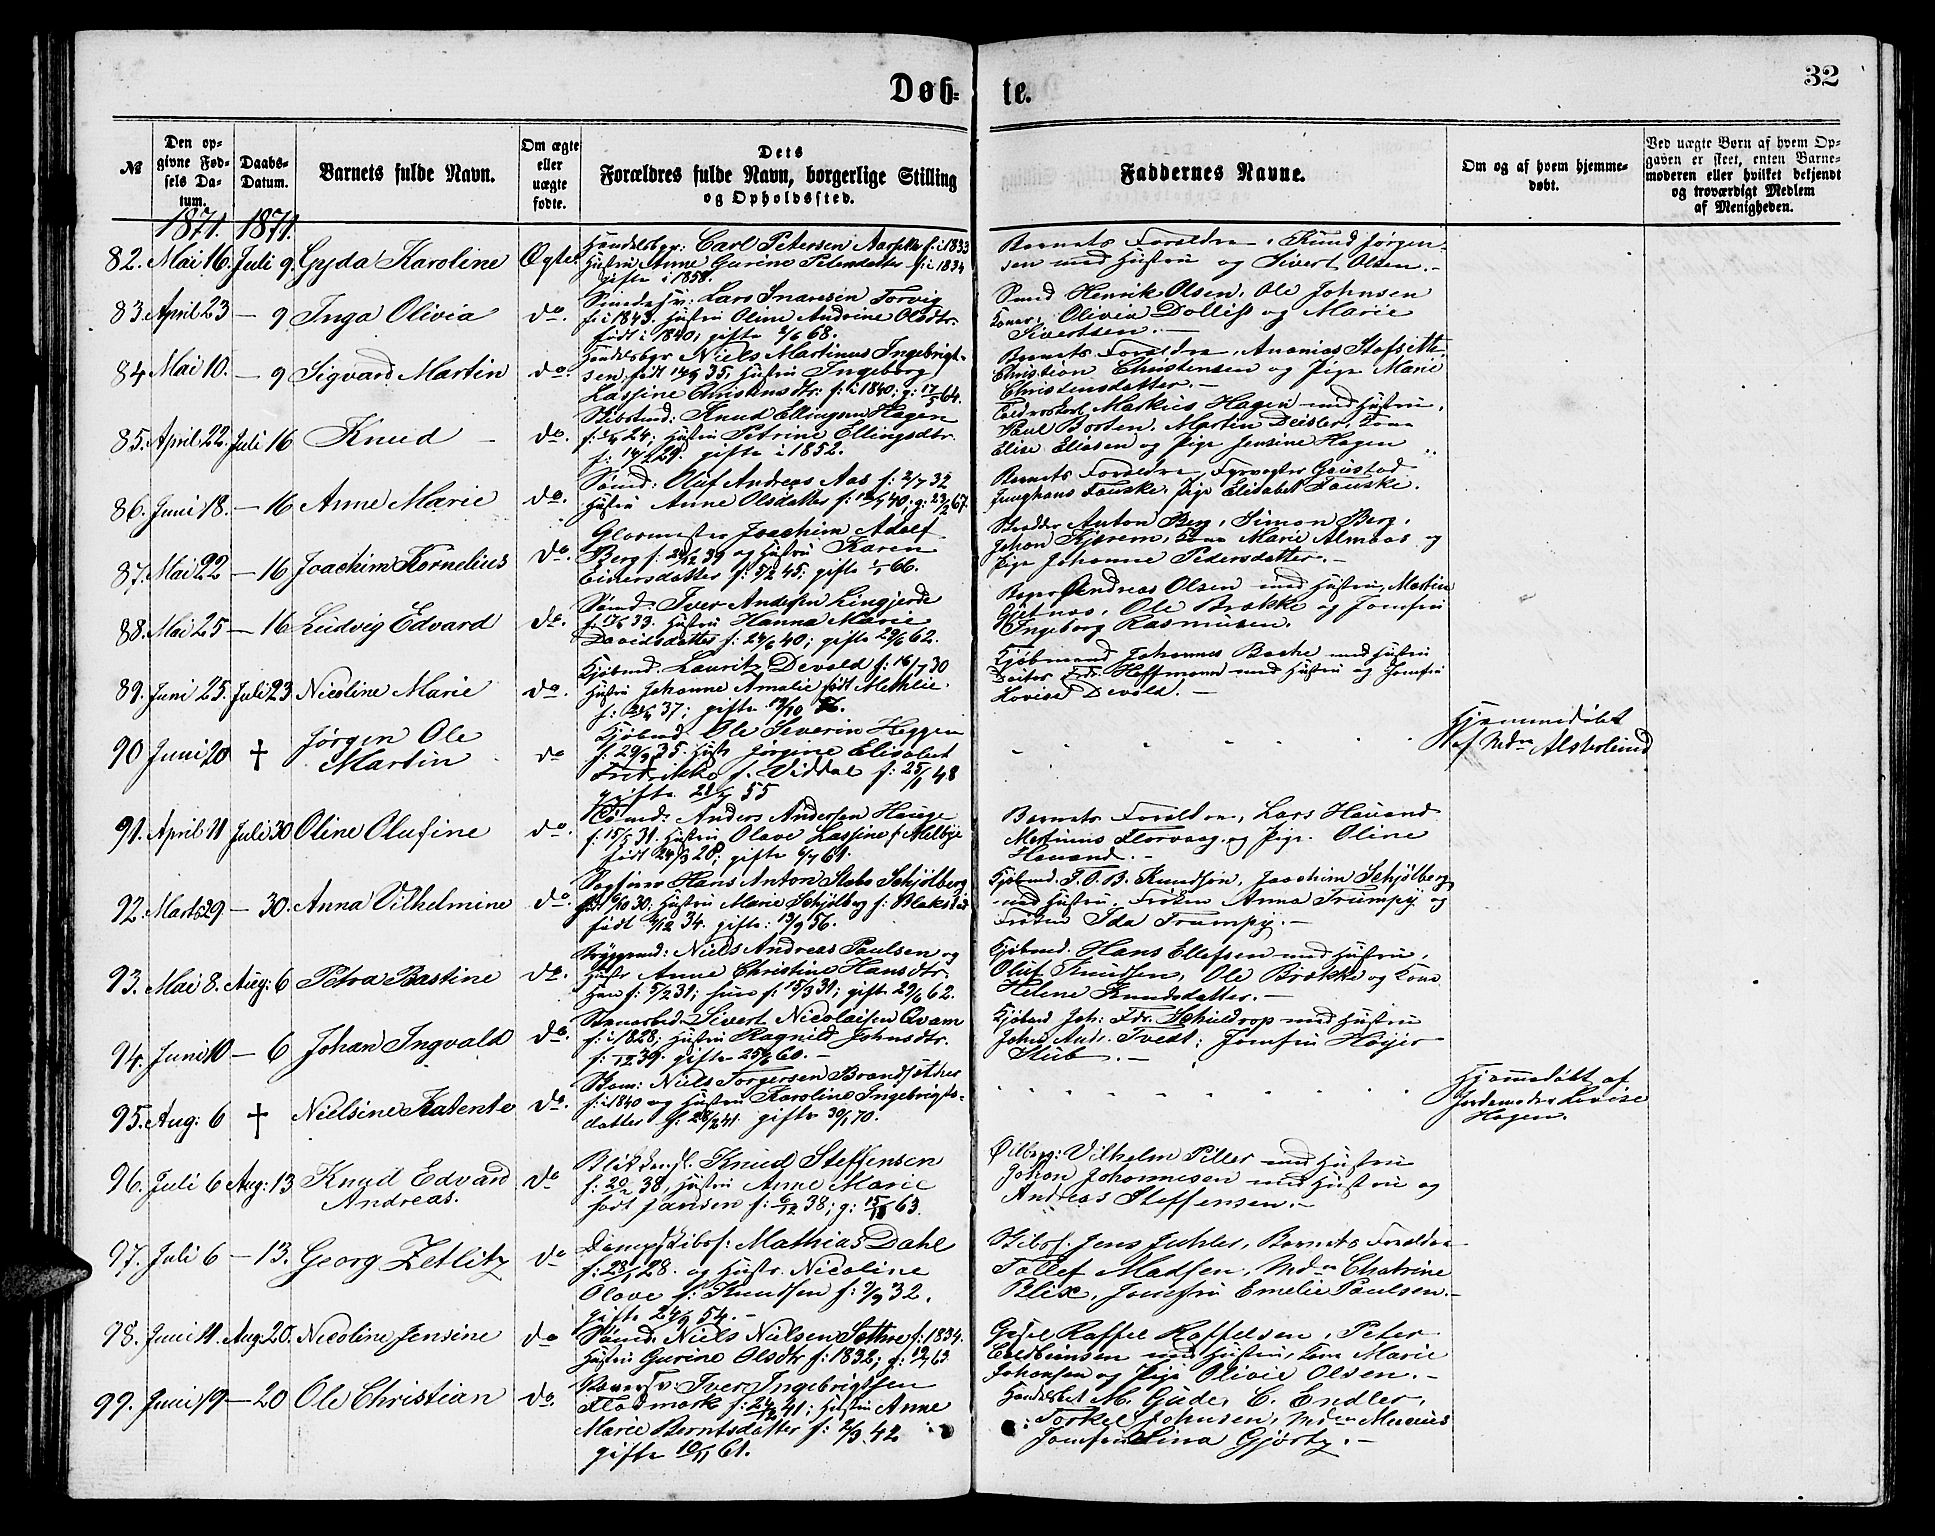 Døb-
te.
32
№
Den op-
givne Fød-
sels Da-
tum.
Daabs-
Datum.
Barnets fulde Navn.
Om ægte
eller
uægte
fødte.
Dets
Forældres fulde Navn, borgerlige Stilling
og Opholdssted.
Faddernes Navne.
Om og af hvem hjemme-
døbt.
Ved uægte Børn af hvem Op-
gaven er skeet, enten Barne-
moderen eller hvilket bekjendt
og troværdigt Medlem
af Menigheden.
1871. 1871.
82. Mai 16. Juli 9. Gyda Karoline Ægte.
Handelsbgr: Carl Petersen f: i 1833
Hustru Anne Gurine Petersdatter f: i 1834
gifte i 1858.
Barnets Forældre, Knud Jørgen-
sen med Hustru og Sivert Olsen.-
83. April 23 — 9 Inga Olivia do.
Lars Torvig
f: i 1843. Hustru Oline Andrine Olsdtr.
født i 1840; gifte 68.
Smed Henrik Olsen, Ole Johnsen
Koner, Olivia Dolliß og Marie
Sivertsen.-
84 Mai 10. — 9 Sigvard Martin do.
Handelsbgr Niels Martinus Ingebrigt-
sen født 14/9 35, Hustru Ingeborg
Lassine Christensdtr. f: i 1840; g: 17/5 64.
Barnets Forældre, Ananias
Christian Christensen og Pige Marie
Christensdatter.-
85. April 22. Juli 16 Knud — do.
Skibstmd: Knud Ellingsen Hagen
24; Hustru Petrine Ellingsdtr.
29. gifte i 1852.
Mathias Hagen med Hustru,
Paul Borten, Martin Deisler, Kone
Elise Eliasen og Pige Jensine Hagen
86. Juni 18. — 16 Anne Marie do.
Sømd: Oluf Andreas Aas f: 2/7 32
Hustru Anne Olsdatter 40; g: 67.
Barnets Forældre, Fyrvogter
Junghans Fauske, Pige Elisabet Fauske.
87. Mai 22 — 16 Joachim Kornelius do.
Glarmester Joachim Adolf
Berg 39 og Hustru Karen
Einersdatter f: 5/2 45; gifte 66.
Skrædder Anton Berg, Simon Berg,
Johan Kjørem, Kone Marie Almaas og
Pige Johanne Pedersdatter.-
88. Mai 25 — 16 Ludvig Edvard do.
Sømd. Iver Andersen Lingjerde
33. Hustru Hanna Marie
Davidsdatter f: 24/6 40; gifte 29/6 62.
Bager Andreas Olsen med Hustru, Martin
Ole Brække og Jomfru
Ingeborg Rasmusen.
89. Juni 25. Juli 23. Nicoline Marie do.
Kjøbmd. Lauritz Devold f: 16/7 30
Hustru Johanne Amalie født Methlie.
37; gifte
Kjøbmand Johannes Bache med Hustru
Fdr. Hoffmann med Hustru og Jomfru
Lovise Devold.-
90 Juni 20 † Jørgen Ole
Martin do
Kjøbmd. Ole Severin Heggen
f. 29/9 35. Hustr. Jørgine Elisabet
Fredrikke f. Viddal f: 25/1 48
gifte 55
Hjemmedøbt
af Mdm Alsterlund
91. April 11 Juli 30 Oline Olufine do.
Sømd. Anders Andersen Hauge
31. Hustru Olave Lassine f Melbye
født 24/3 28; gifte 6/7 61.
Barnets Forældre, Lars Hauand
Martinus Florvaag og Pige Oline
Hauand.-
92. Marts 29 — 30. Anna Vilhelmine do
Sagfører Hans Anton Stabo Schjølberg
30. Hustru Marie Schjølberg f: Blakstad
født 2/12 34. gifte: 13/9 56.
Kjøbmd. T. O. B. Knudson, Joachim Schjølberg
med Hustru. Frøken Anna Trumpy og
Frøken Ida Trumpy.-
93. Mai 8. Aug: 6 Petra Bastine do.
Bryggmd: Niels Andreas Paulsen og
Hustr. Anne Christine Hansdtr.
Han f: 5/2 31; hun f: 15/3 31; gifte 29/6 62.
Kjøbmd. Hans Ellefsen med Hustru,
Oluf Knudsen, Ole Brække og Kone
Helene Knudsdatter.-
94. Juni 10 — 6 Johan Ingvald do.
Stenarbeid. Sivert Nicolaisen Qvam
f: i 1828; Hustru Ragnild Johnsdtr.
39. gifte 25/6 60.-
Kjøbmd Joh: Fdr. Schieldrop med Hustru
John Andr. Tvedt; Jomfru Høyer
Stub.-
95. Aug: 6 † Nielsine Katente do.
Niels Torgersen Brandsæther
f: i 1840 og Hustru Karoline Ingebrigts-
datter f: 28/2 41. gifte 30/1 70.
Hjemmedøbt af
Jordemoder Lovise
Hagen.
96. Juli 6 Aug: 13 Knud Edvard
Andreas. do
Knud Steffensen
f: 20/2 38, Hustru Anne Marie
født Jansen 38; g: 63.
Vilhelm Piller med Hustru
Johan Johannesen med Hustru og
Andreas Steffensen.-
97. Juli 6 — 13. Georg Zetlitz do
Dampskibsf: Mathias Dahl
28. og Hustr. Nicoline
Olave f: Knudsen f: 9/9 32.
gifte 24/9 54.-
Skibsf. Jens Juhler, Barnets Forældre
Tollef Madsen, Mdm Chatrine
Blix, Jomfru Emelie Paulsen.-
98. Juni 11. Aug. 20. Nicoline Jensine do
Sømd. Niels Nielsen f: 1834.
Hustru Gurine Olsdtr f: 1832; g: 63.
Raffel Raffelsen, Peter
med Hustru, Kone Marie
Johansen og Pige Olivie Olsen.-
99. Juni 19 — 20 Ole Christian do.
Iver Ingebrigtsen
Flodmark 41; Hustru Anne
Marie Berntsdatter f: 2/3 42
gifte 10/11 61.
M. Gude, C. Endler,
Torkel Johnsen, Mdm
Jomfru Lina Gjørtz.-